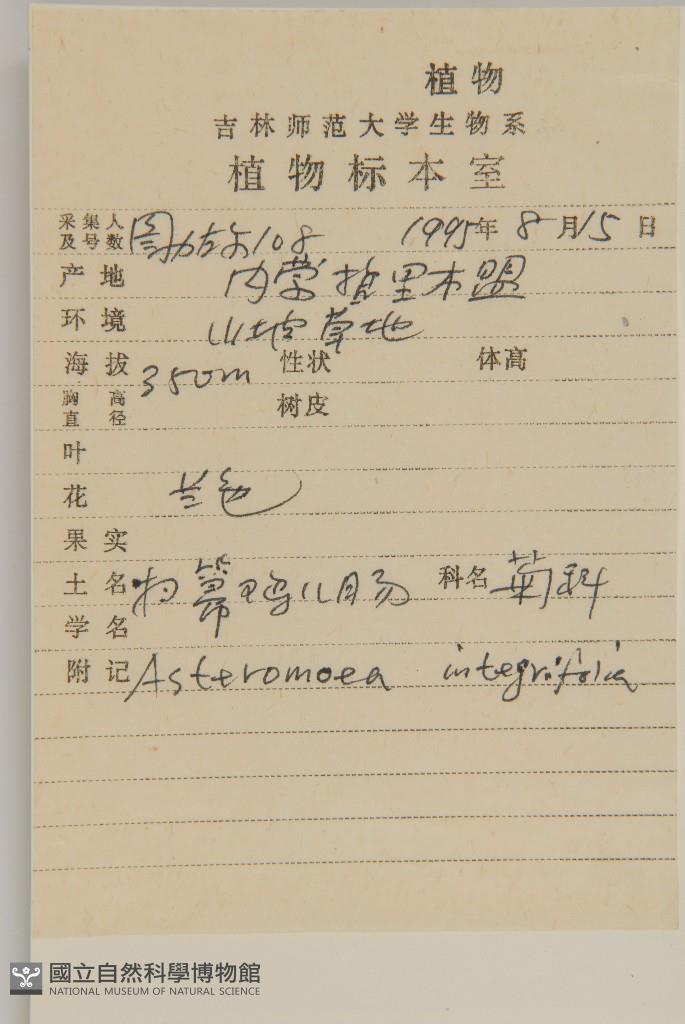 植物
吉林师范大学生物系
植物标本室
采集人及号数 图力古尔108 1995年8月15日
产地 内蒙哲里木盟
环境 山坡草地
海拔 350m 性状 体高
胸高直径 树皮
叶
花 兰色
果实
土名 扫帚鸡儿肠 科名 菊科
学名
附记 Asteromoea integrifolia
國立自然科學博物館
NATIONAL MUSEUM OF NATURAL SCIENCE